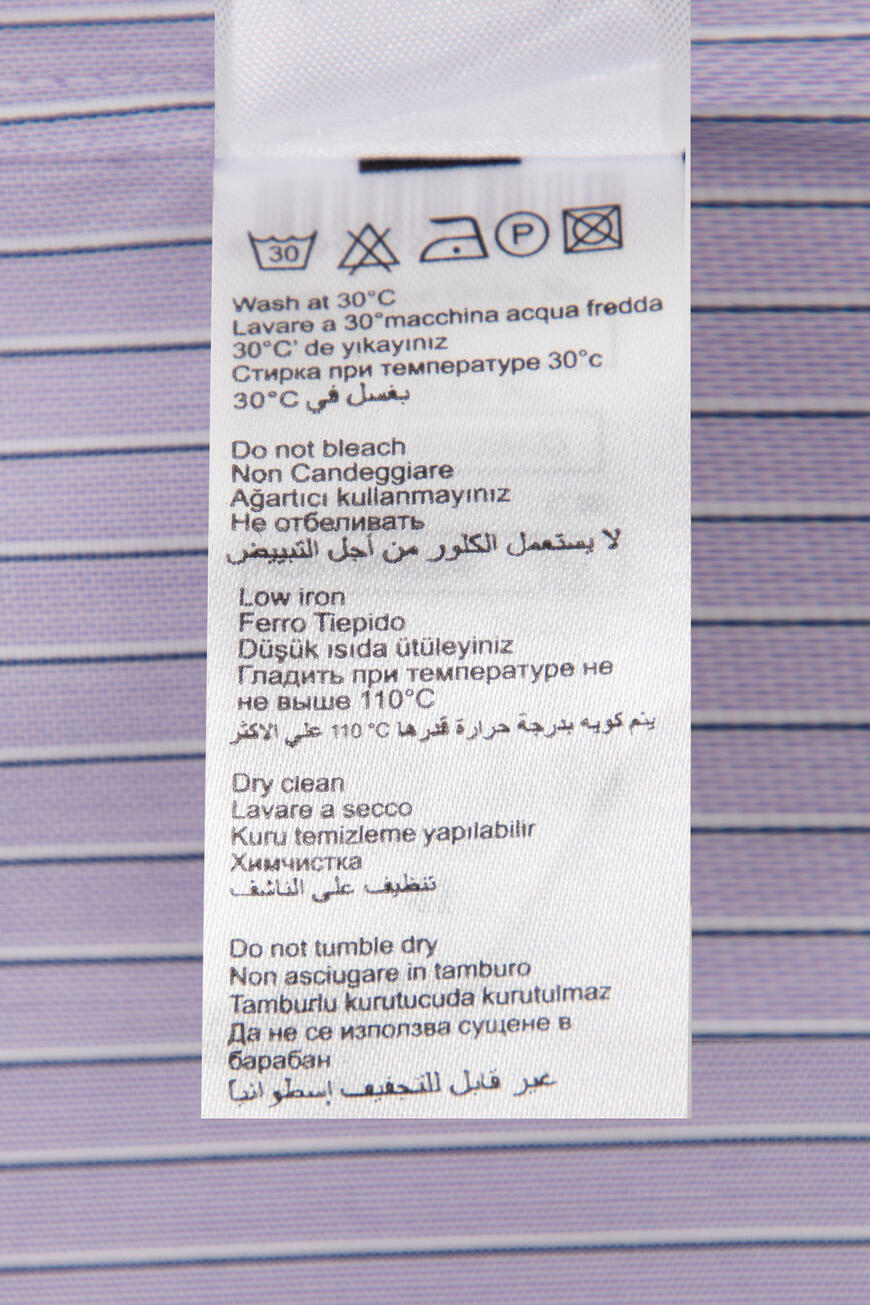 30 P
Wash at 30°C
Lavare a 30°macchina acqua fredda
30°C' de yıkayınız
Стирка при температуре 30°c
بغسل في 30°C
Do not bleach
Non Candeggiare
Ağartıcı kullanmayınız
Не отбеливать
لا يستعمل الكلور من أجل التبييض
Low iron
Ferro Tiepido
Düşük ısıda ütüleyiniz
Гладить при температуре не
не выше 110°C
يتم كويه بدرجة حرارة قدرها 110 °C علي الاكثر
Dry clean
Lavare a secco
Kuru temizleme yapılabilir
Химчистка
تنظيف على الناشف
Do not tumble dry
Non asciugare in tamburo
Tamburlu kurutucuda kurutulmaz
Да не се използва сущене в
барабан
غير قابل للتجفيف إسطوانيا